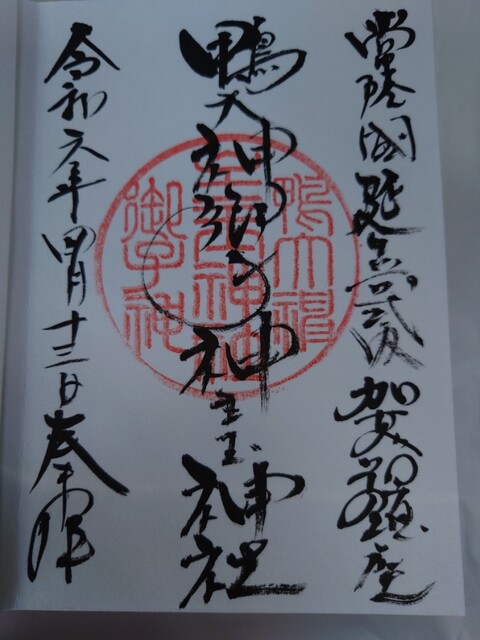 常陸國延喜式内加茂鎮座
鴨大神御子神主玉神社
令和六年四月十三日奉拝
鴨大神
主玉神社
御子神